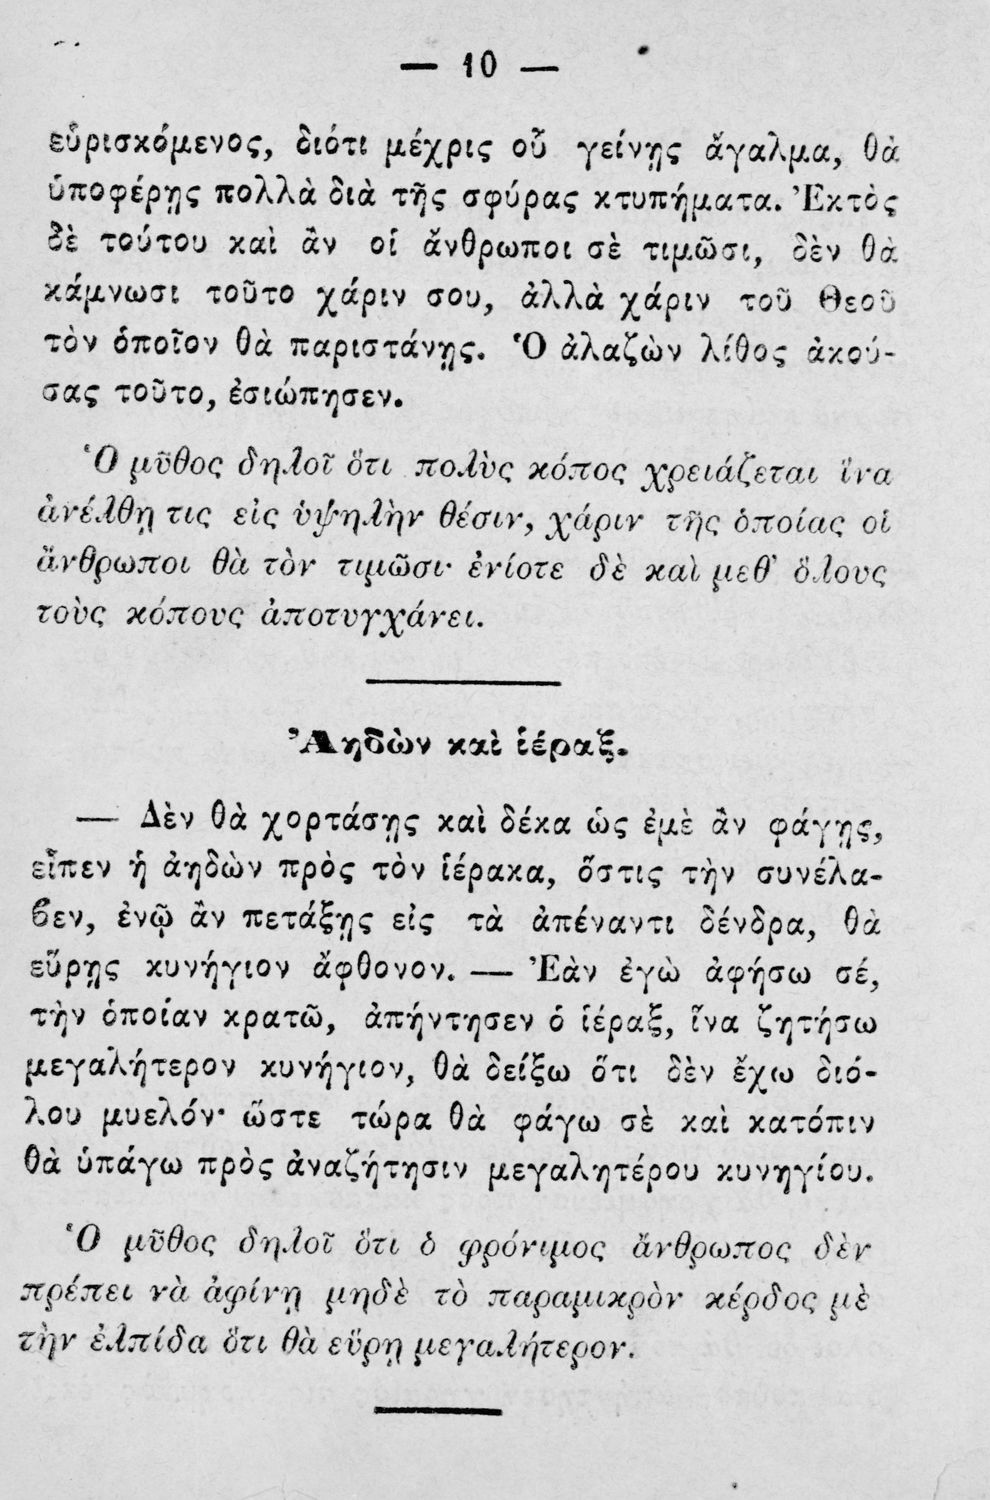 — 10 —
εὑρισκόμενος, διότι μέχρις οὗ γείνῃς ἄγαλμα, θὰ
ὑποφέρῃς πολλὰ διὰ τῆς σφύρας κτυπήματα. Ἐκτὸς
δὲ τούτου καὶ ἂν οἱ ἄνθρωποι σὲ τιμῶσι, δὲν θὰ
κάμνωσι τοῦτο χάριν σου, ἀλλὰ χάριν τοῦ Θεοῦ
τὸν ὁποῖον θὰ παριστάνῃς. Ὁ ἀλαζὼν λίθος ἀκού-
σας τοῦτο, ἐσιώπησεν.
Ὁ μῦθος δηλοῖ ὅτι πολὺς κόπος χρειάζεται ἵνα
ἀνέλθῃ τις εἰς ὑψηλὴν θέσιν, χάριν τῆς ὁποίας οἱ
ἄνθρωποι θὰ τὸν τιμῶσι· ἐνίοτε δὲ καὶ μεθ' ὅλους
τοὺς κόπους ἀποτυγχάνει.
Ἀηδὼν καὶ ἱέραξ.
— Δὲν θὰ χορτάσῃς καὶ δέκα ὡς ἐμὲ ἂν φάγῃς,
εἶπεν ἡ ἀηδὼν πρὸς τὸν ἱέρακα, ὅστις τὴν συνέλα-
βεν, ἐνῷ ἂν πετάξῃς εἰς τὰ ἀπέναντι δένδρα, θὰ
εὕρῃς κυνήγιον ἄφθονον. — Ἐὰν ἐγὼ ἀφήσω σέ,
τὴν ὁποίαν κρατῶ, ἀπήντησεν ὁ ἱέραξ, ἵνα ζητήσω
μεγαλήτερον κυνήγιον, θὰ δείξω ὅτι δὲν ἔχω διό-
λου μυελόν· ὥστε τώρα θὰ φάγω σὲ καὶ κατόπιν
θὰ ὑπάγω πρὸς ἀναζήτησιν μεγαλητέρου κυνηγίου.
Ὁ μῦθος δηλοῖ ὅτι ὁ φρόνιμος ἄνθρωπος δὲν
πρέπει νὰ ἀφίνῃ μηδὲ τὸ παραμικρὸν κέρδος μὲ
τὴν ἐλπίδα ὅτι θὰ εὕρῃ μεγαλήτερον.